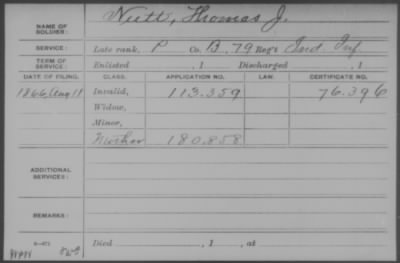 NAME OF SOLDIER: Nutt, Thomas J.
SERVICE: Late rank, P Co. B, 79 Reg't Ind. Inf
TERM OF SERVICE: Enlisted , 1 Discharged , 1
DATE OF FILING. CLASS. APPLICATION NO. LAW. CERTIFICATE NO.
1866, Aug 11 Invalid, 113.359 76.396
Widow,
Minor,
Mother 180.858
ADDITIONAL SERVICES:
REMARKS:
Died , 1 , at